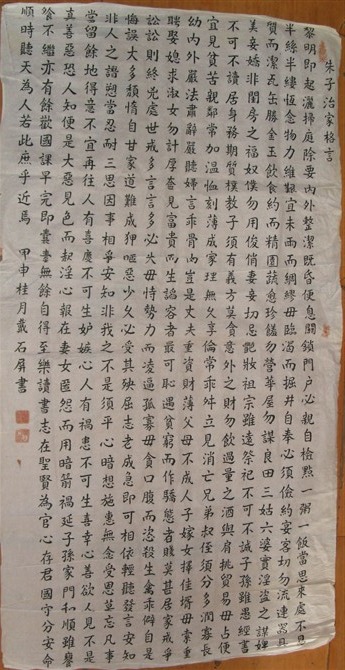 朱子治家格言
黎明即起灑掃庭除要內外整潔既昏便息關鎖門户必親自檢點一粥一飯當思來處不易
半絲半縷恆念物力維艱宜未雨而綢繆毋臨渴而掘井自奉必須儉約宴客切勿流連器具
質而潔瓦缶勝金玉飲食約而精園蔬愈珍饈勿營華屋勿謀良田三姑六婆實淫盜之媒婢
美妾嬌非閨房之福奴僕勿用俊俏妻妾切忌艷妝祖宗雖遠祭祀不可不誠子孫雖愚經書
不可不讀居身務期質樸教子須有義方莫貪意外之財勿飲過量之酒與肩挑貿易毋占便
宜見貧苦親鄰常加溫恤刻薄成家理無久享倫常乖舛立見消亡兄弟叔侄須分多潤寡長
幼內外嚴法肅辭嚴聽婦言乖骨肉豈是丈夫重資財薄父母不成人子嫁女擇佳壻毋索重
聘娶媳求淑女勿計厚奩見富貴而生諂容者最可恥遇貧窮而作驕態者賤莫甚居家戒爭
訟訟則終兇處世戒多言言多必失毋恃勢力而凌逼孤寡毋貪口腹而恣殺生禽乖僻自是
悔誤大多頹惰自甘家道難成狎暱惡少久必受其殃屈志老成急即可相依輕聽發言安知
非人之譖愬當忍耐三思因事相爭安知非我之不是須平心暗想施惠無念受恩莫忘凡事
當留餘地得意不宜再往人有喜慶不可生妒嫉心人有禍患不可生喜幸心善欲人見不是
真善惡恐人知便是大惡見色而起淫心報在妻女匿怨而用暗箭禍延子孫家門和順雖饔
飧不繼亦有餘歡國課早完即囊橐無餘自得至樂讀書志在聖賢為官心存君國守分安命
順時聽天為人若此庶乎近焉 甲申桂月戴石屏書